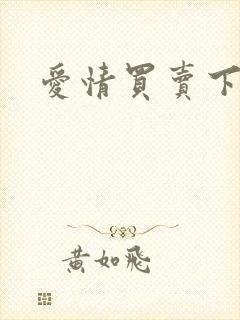 愛情買賣下
黃如飛